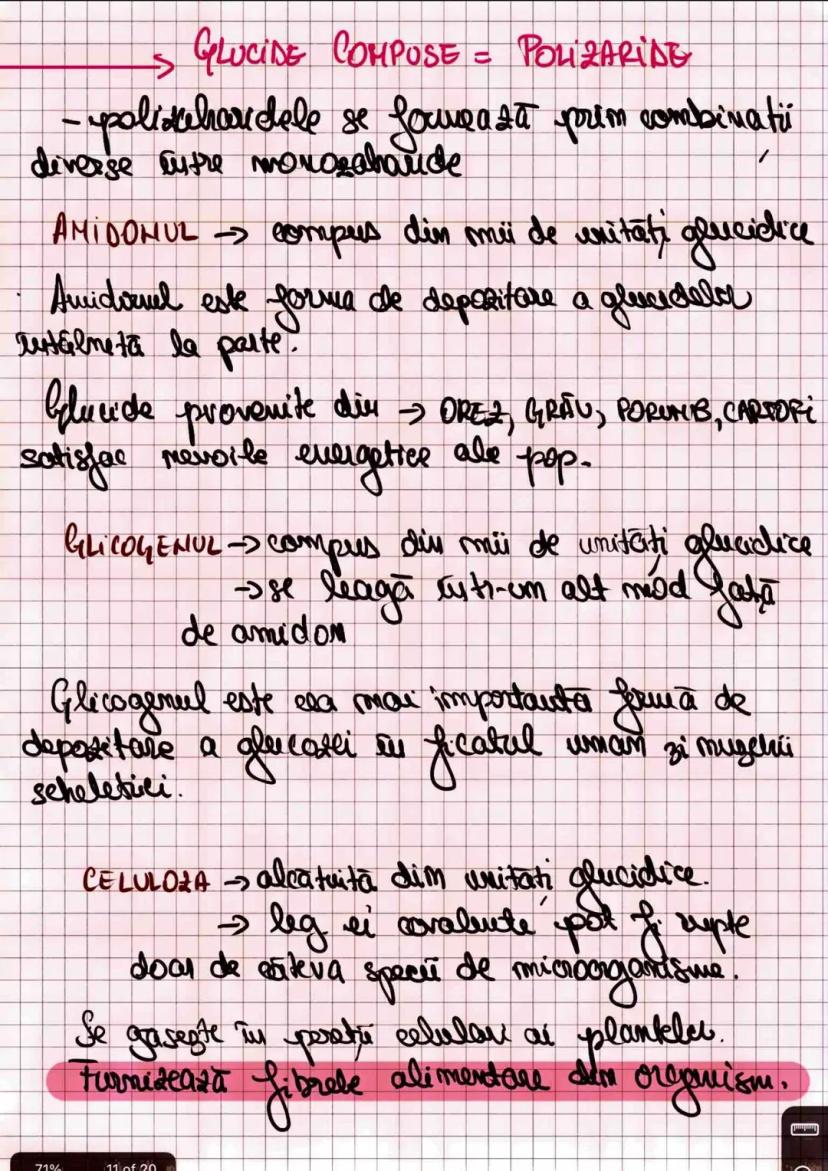 GLUCIDE COMPUSE = POLIZARIDE
- polizaharidele se formează prim combinații
diverse între monozaharide
AMIDONUL → compus dim mii de unități glucidice
Amidonul este forma de depozitare a glucidelor
întâlnită la
Glucide provenite din → OREZ, GRÂU, PORUMB, CARTOFI
satisfac nevoile energetice ale pop.
GLICOGENUL → compus din mii de unități glucidice
→ se leagă într-um alt mod față
de amidon
Glicogenul este cea mai importantă formă de
depozitare a glucozei în ficatul uman și mușchii
scheletici.
CELULOZA → alcătuită dim unități glucidice.
→ leg ei covalente pot fi rupte
doar de câteva specii de microorganisme.
Se găsește în pereții celulari ai plantelor.
Furnizează fibrele alimentare din organism.
71% 11 of 20